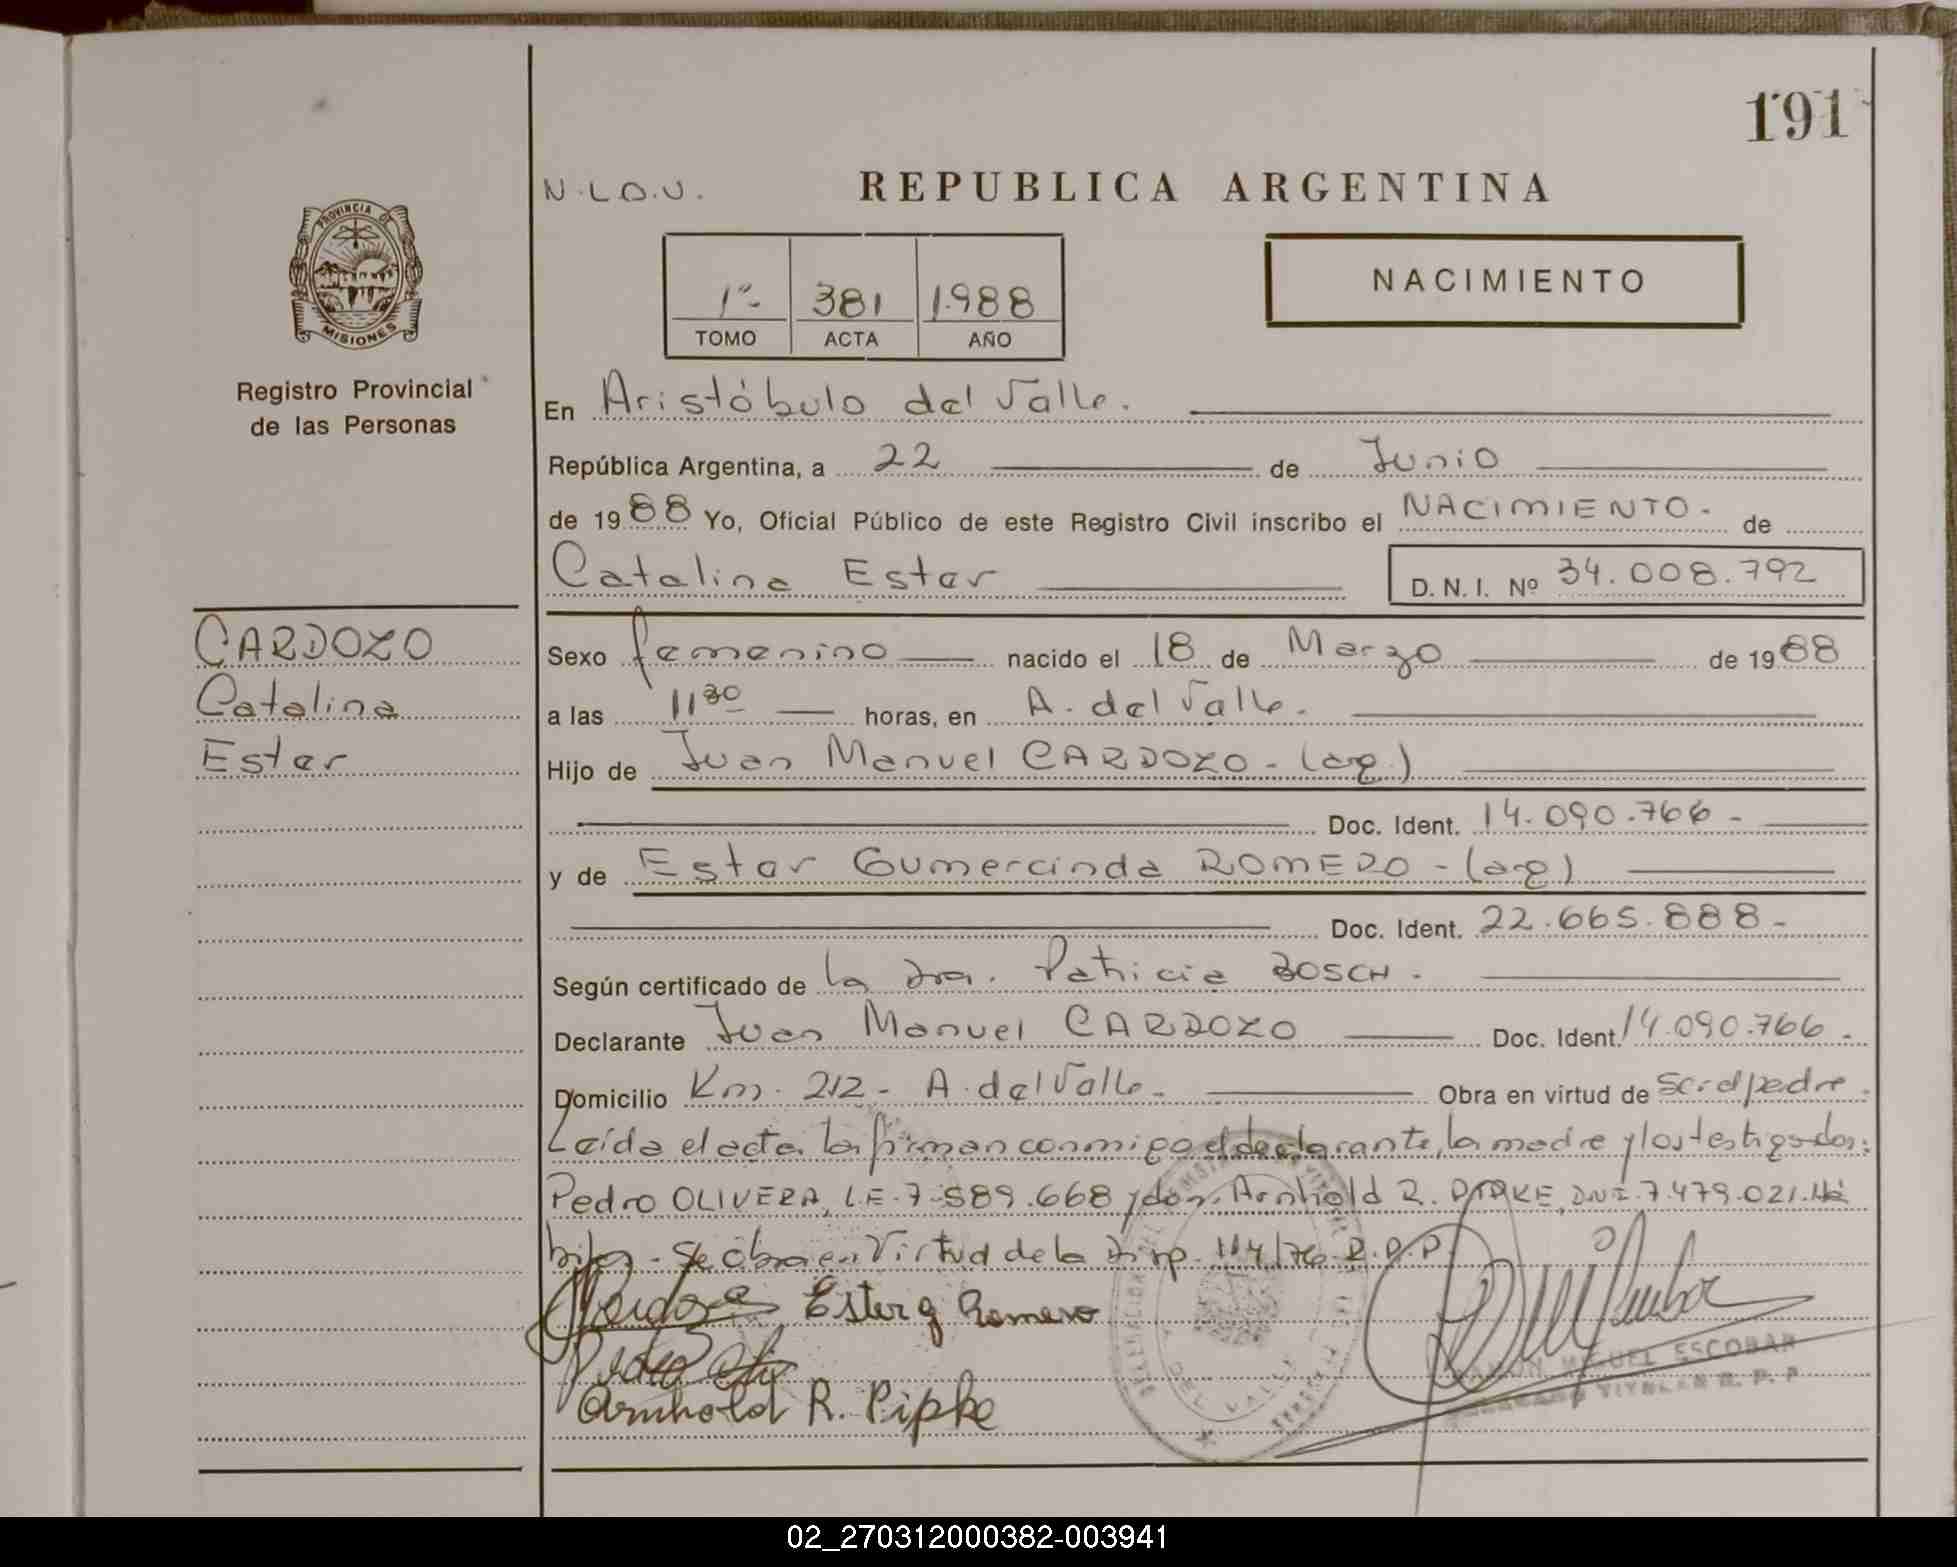 191
N.L.O.U.
REPUBLICA ARGENTINA
PROVINCIA DE
MISIONES
Registro Provincial
de las Personas
1º 381 1.988
TOMO ACTA AÑO
NACIMIENTO
En Aristóbulo del Valle.
República Argentina, a 22 de Junio
de 1988 Yo, Oficial Público de este Registro Civil inscribo el NACIMIENTO. de
Catalina Ester D. N. I. Nº 34.008.792
CARDOZO
Catalina
Ester
Sexo femenino nacido el 18 de Marzo de 1988
a las 11 30 horas, en A. del Valle.
Hijo de Juan Manuel CARDOZO - (arg.)
Doc. Ident. 14.090.766 -
y de Ester Gumercinda ROMERO - (arg)
Doc. Ident. 22.665.888 -
Según certificado de la Dra. Patricia BOSCH.
Declarante Juan Manuel CARDOZO Doc. Ident. 14.090.766.
Domicilio Km. 212 - A. del Valle. Obra en virtud de ser el padre.
Leída el acta la firman conmigo el declarante, la madre y los testigos don:
Pedro OLIVERA, L.E. 7.589.668 y don Arnhold R. PIPKE, DNI. 7.479.021. Há
biles - Se obra en Virtud de la Disp. 114/76 R.P.P.
Cardozo Ester g Romero
Pedro
Arnhold R. Pipke
DEL VALLE
RAMON MIGUEL ESCOBAR
R. P. P.
02_270312000382-003941